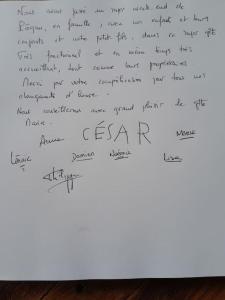 Nous avons passé un super week-end de
Pâques, en famille, avec un enfant et leurs
conjoints et notre petit fils, dans ce super gîte
Très fonctionnel et en même temps très
accueillant, tout comme leurs propriétaires
Merci par votre compréhension par tous nos
changements d'heure.
Nous reviendrons avec grand plaisir de gîte
Marie.
Anne CÉSAR
Damien Noémie Lisa
Philippe